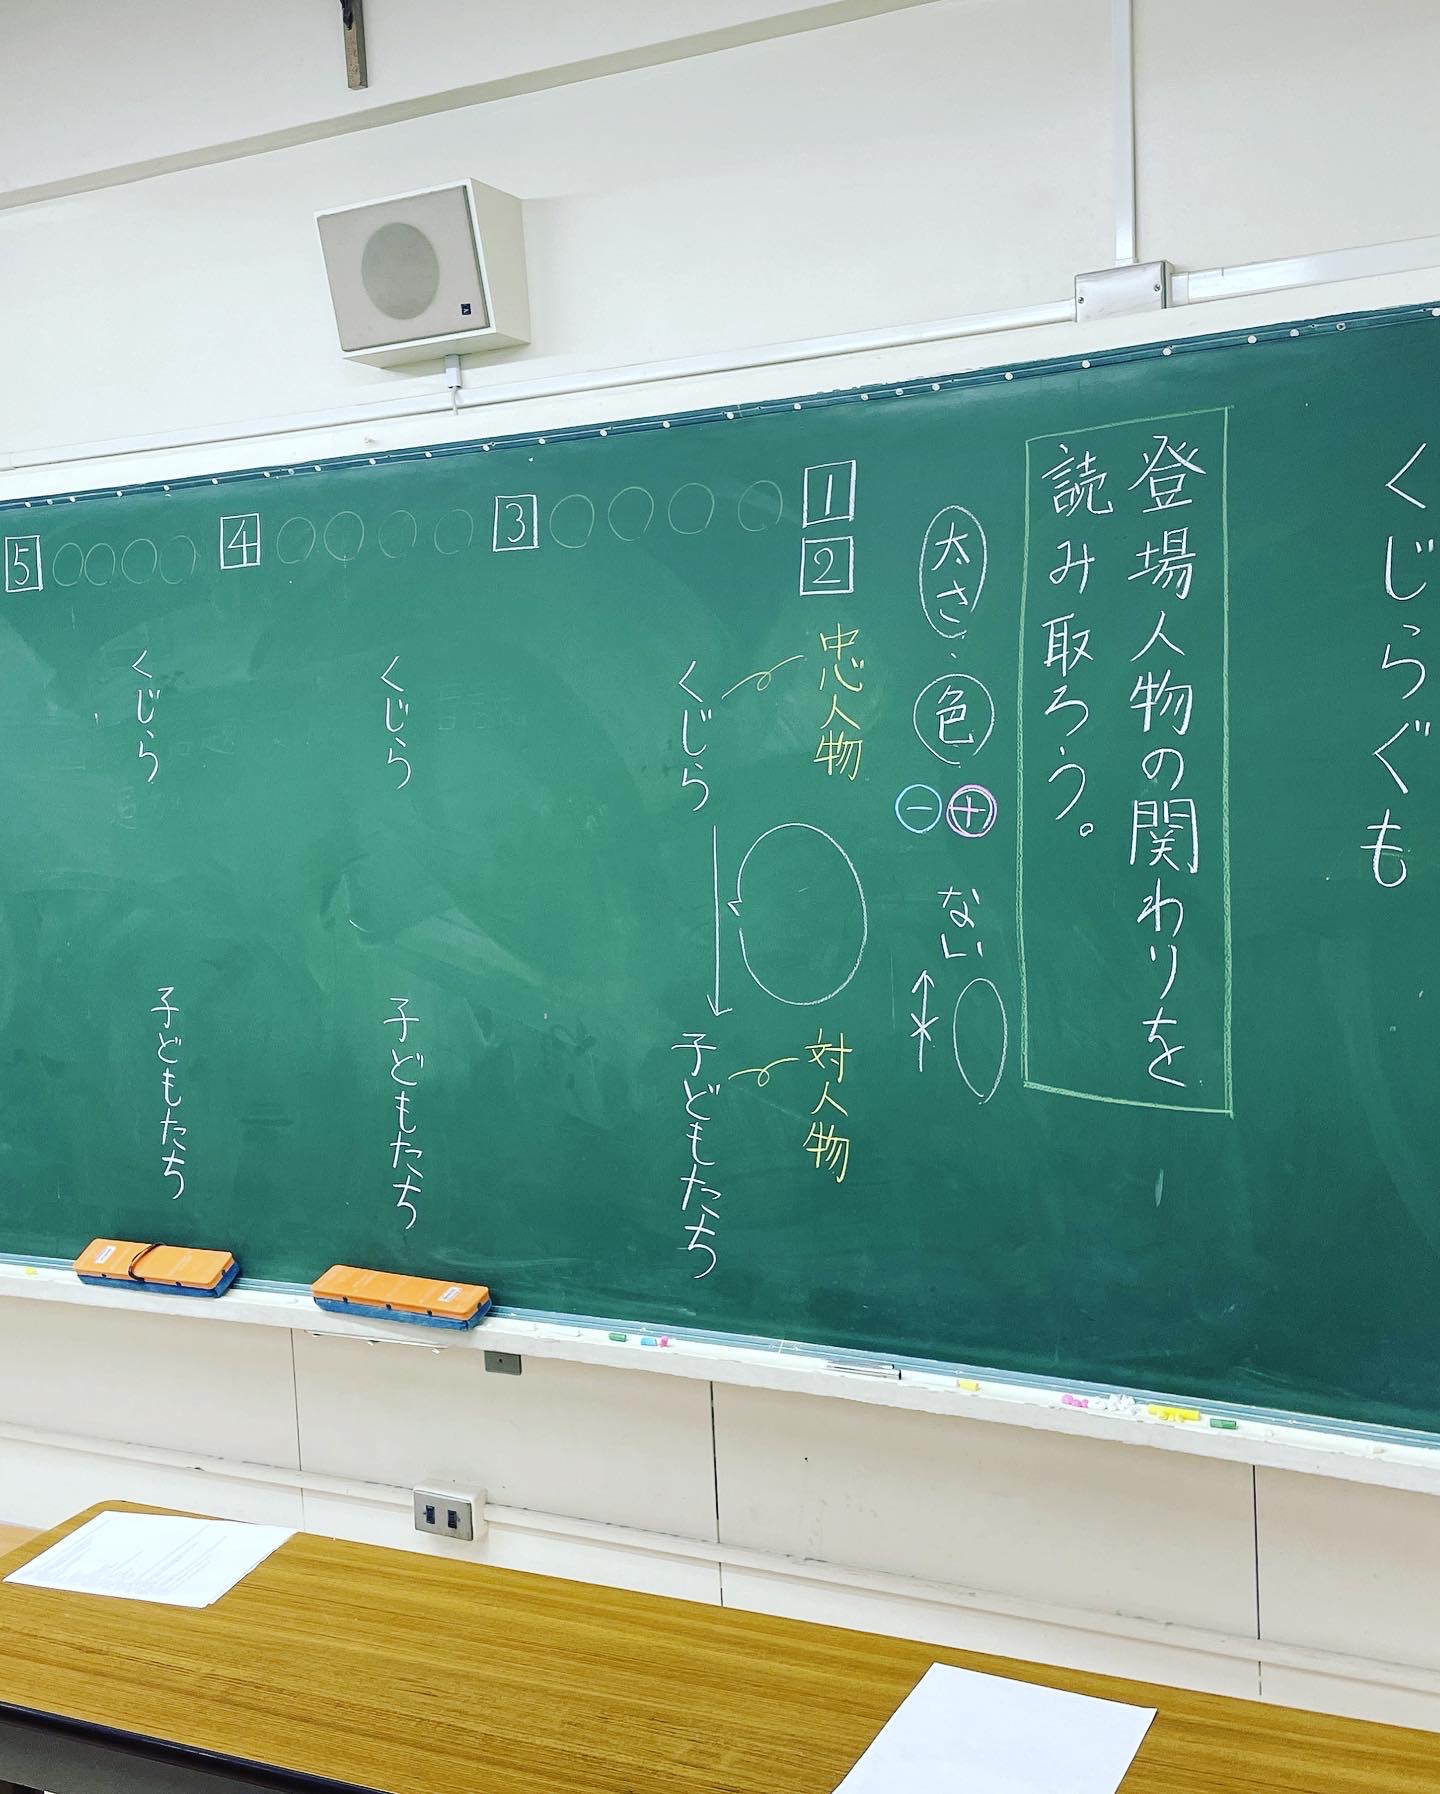 くじらぐも
登場人物の関わりを
読み取ろう。
太さ、色、⊕⊖ ない
1 2 中心人物 対人物
くじら → 子どもたち
3
くじら 子どもたち
4
くじら 子どもたち
5